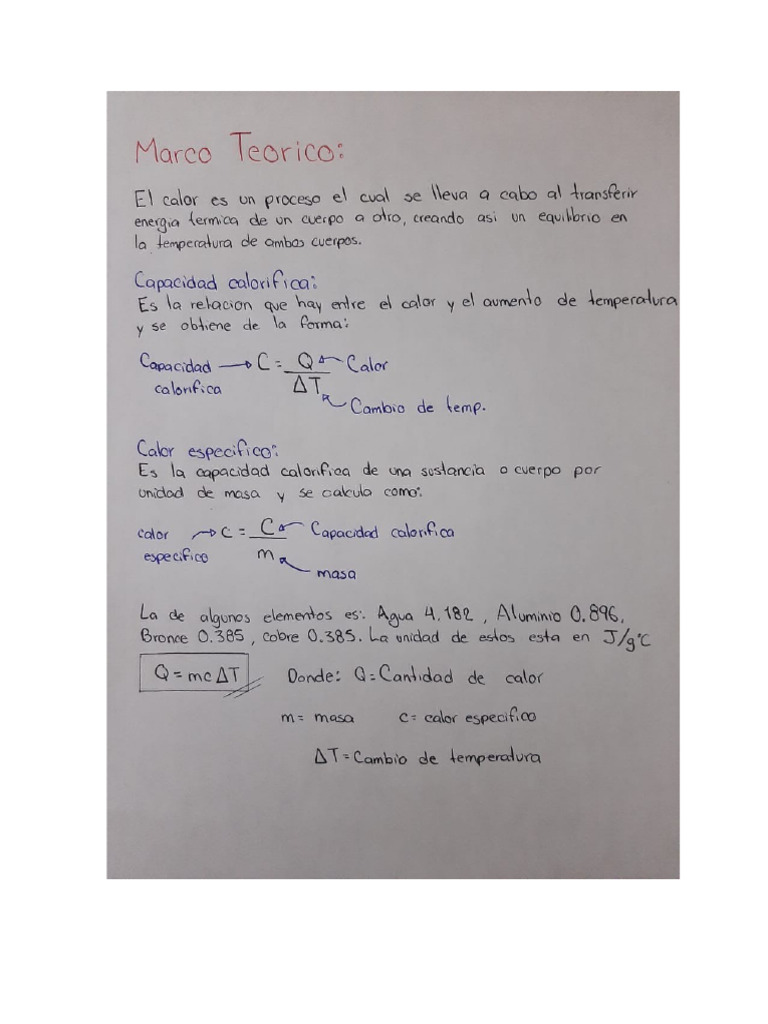 Marco Teorico:
El calor es un proceso el cual se lleva a cabo al transferir
energia termica de un cuerpo a otro, creando asi un equilibrio en
la temperatura de ambos cuerpos.
Capacidad calorifica:
Es la relacion que hay entre el calor y el aumento de temperatura
y se obtiene de la forma:
Capacidad calorifica → C = Q / ΔT ← Calor
Cambio de temp.
Calor especifico:
Es la capacidad calorifica de una sustancia o cuerpo por
unidad de masa y se calcula como:
calor especifico → c = C / m ← Capacidad calorifica
masa
La de algunos elementos es: Agua 4.182, Aluminio 0.896,
Bronce 0.385, cobre 0.385. La unidad de estos esta en J/g°C
Q = mcΔT Donde: Q = Cantidad de calor
m = masa c = calor especifico
ΔT = Cambio de temperatura